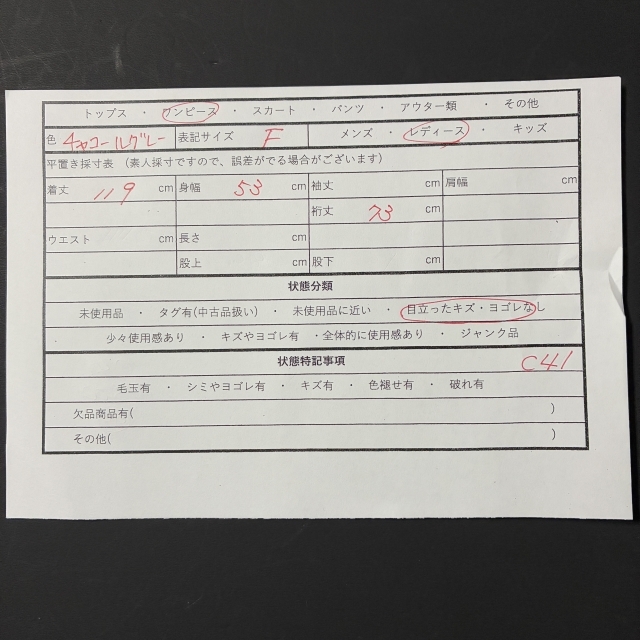 トップス ・ ワンピース ・ スカート ・ パンツ ・ アウター類 ・ その他
色 チャコールグレー 表記サイズ F メンズ ・ レディース ・ キッズ
平置き採寸表 （素人採寸ですので、誤差がでる場合がございます）
着丈 119 cm 身幅 53 cm 袖丈 cm 肩幅 cm
裄丈 73 cm
ウエスト cm 長さ cm
股上 cm 股下 cm
状態分類
未使用品 ・ タグ有(中古品扱い) ・ 未使用品に近い ・ 目立ったキズ・ヨゴレなし
少々使用感あり ・ キズやヨゴレ有 ・全体的に使用感あり ・ ジャンク品
状態特記事項 C41
毛玉有 ・ シミやヨゴレ有 ・ キズ有 ・ 色褪せ有 ・ 破れ有
欠品商品有( )
その他( )